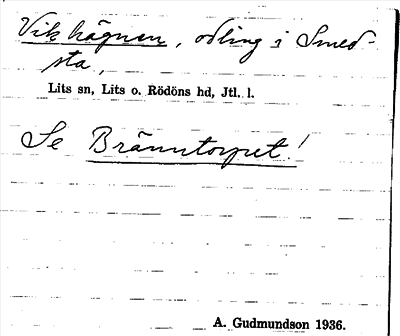 Vikhägnen, odling i Smed-
sta,
Lits sn, Lits o. Rödöns hd, Jtl. l.
Se Bränntorpet!
A. Gudmundson 1936.